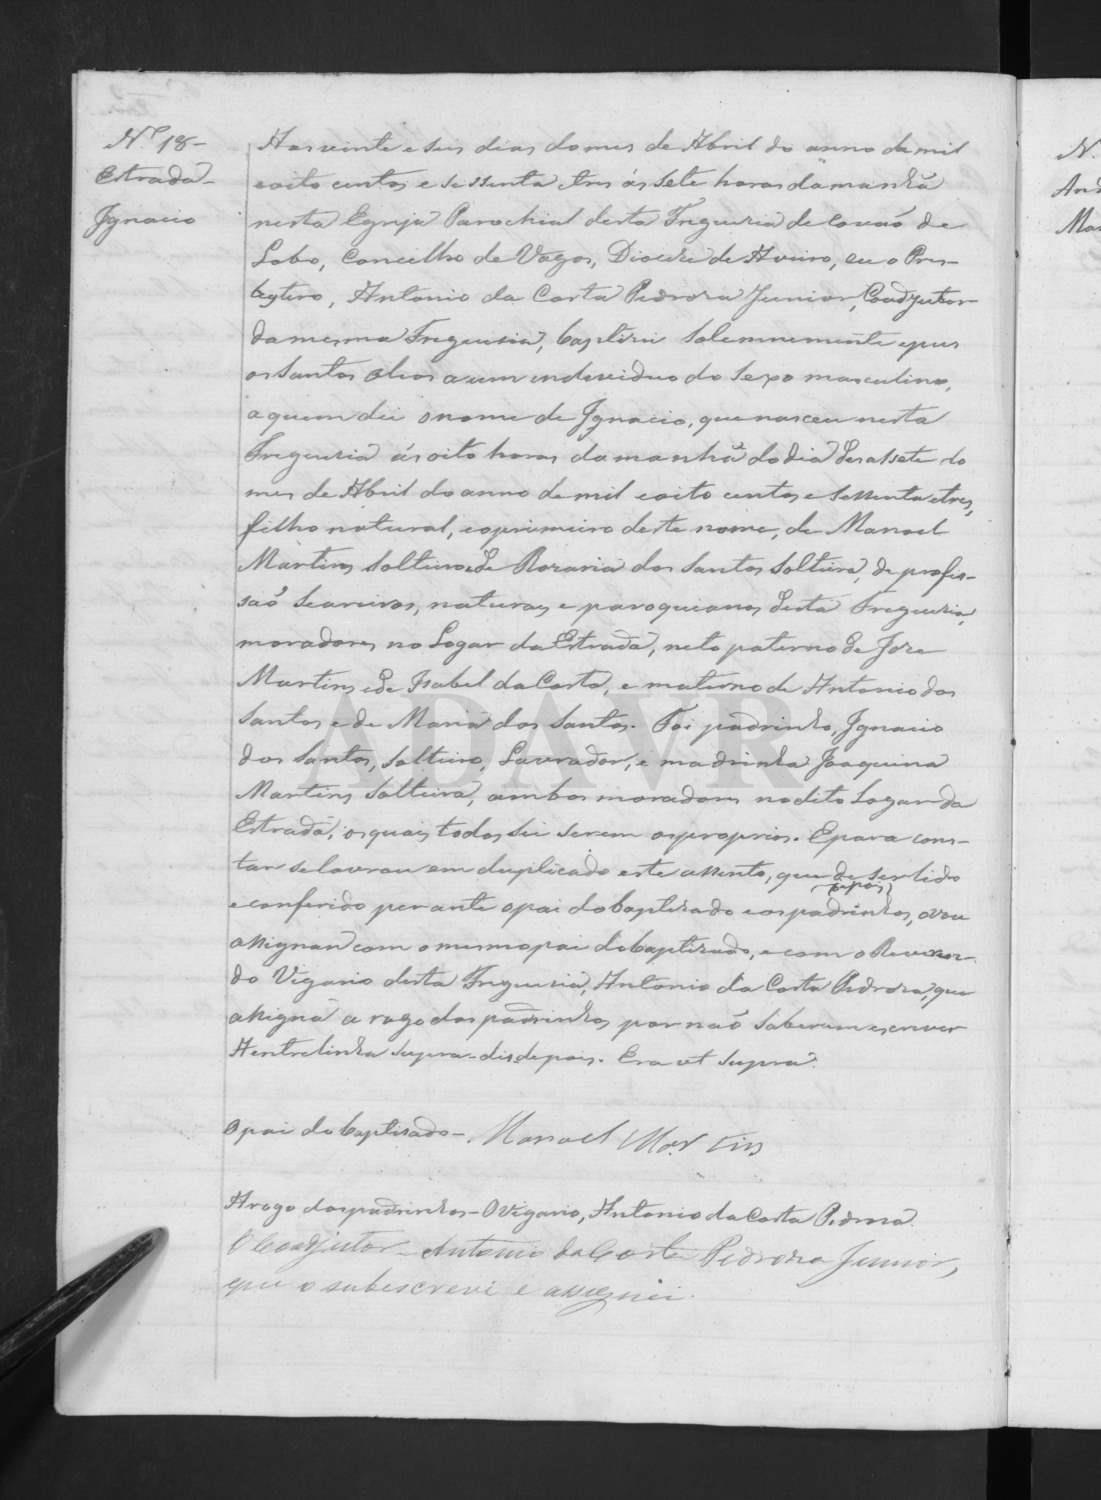 N.º 18-
Estrada-
Ignacio
Aos vinte e seis dias do mes de Abril do anno de mil
e oito centos e sessenta e tres ás sete horas da manhã
nesta Egreja Parochial desta Freguesia de Covaõ de
Lobo, Concelho de Vagos, Diocese de Aveiro, eu o Pres-
bytero, Antonio da Costa Pedrosa Junior, Coadjutor
da mesma Freguesia, baptisei solemnemente e pus
os Santos Oleos a um individuo do sexo masculino,
a quem dei o nome de Ignacio, que nasceu nesta
Freguesia ás oito horas da manhã do dia desassete do
mes de Abril do anno de mil e oito centos e sessenta e tres,
filho natural, e o primeiro deste nome, de Manoel
Martins solteiro e de Rosaria dos Santos solteira, de profis-
saõ Seareiros, naturaes e paroquianos desta Freguesia,
moradores no Logar da Estrada, neto paterno de Jose
Martins e de Isabel da Costa, e materno de Antonio dos
Santos e de Maria dos Santos. Foi padrinho, Ignacio
dos Santos, solteiro, Lavrador, e madrinha Joaquina
Martins solteira, ambos moradores no dito Logar da
Estrada, os quais todos sei serem os proprios. E para cons-
tar se lavrou em duplicado este assento, que de ser lido
depois
e conferido perante o pai do baptisado e os padrinhos, o vou
assignar com o mesmo pai do baptisado, e com o Reveren-
do Vigario desta Freguesia, Antonio da Costa Pedrosa, que
assigna a rogo dos padrinhos por naõ saberem escrever
A entrelinha supra-dis depois. Era ut supra.
O pai do baptisado-. Manoel Martins
A rogo dos padrinhos-O Vigario, Antonio da Costa Pedrosa.
O Coadjutor-Antonio da Costa Pedrosa Junior,
que o subescrevi e assignei.
N.
And
Ma
ADAVR